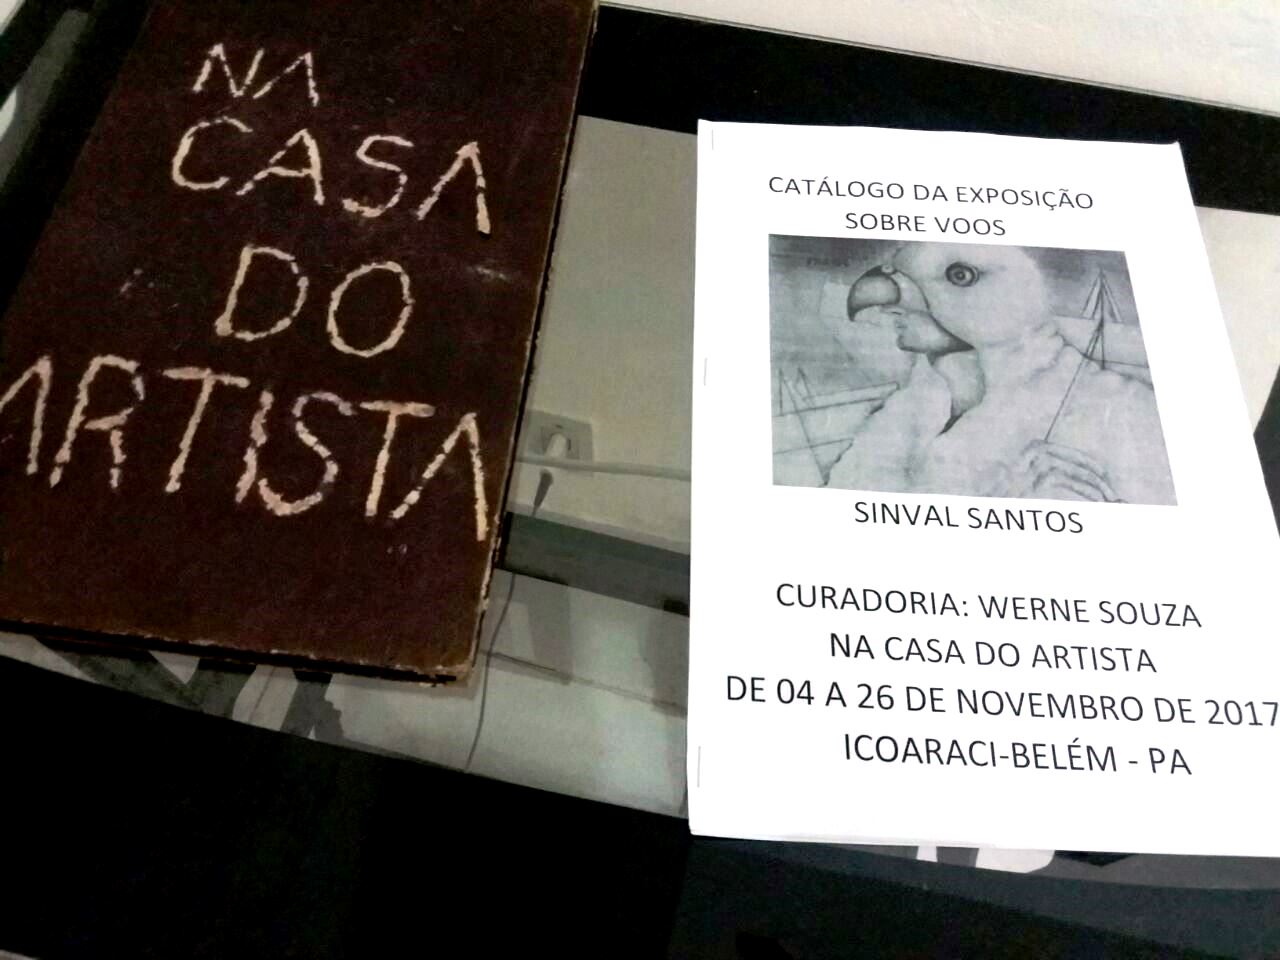 NA
CASA
DO
ARTISTA
CATÁLOGO DA EXPOSIÇÃO
SOBRE VOOS
SINVAL SANTOS
CURADORIA: WERNE SOUZA
NA CASA DO ARTISTA
DE 04 A 26 DE NOVEMBRO DE 2017
ICOARACI-BELÉM - PA